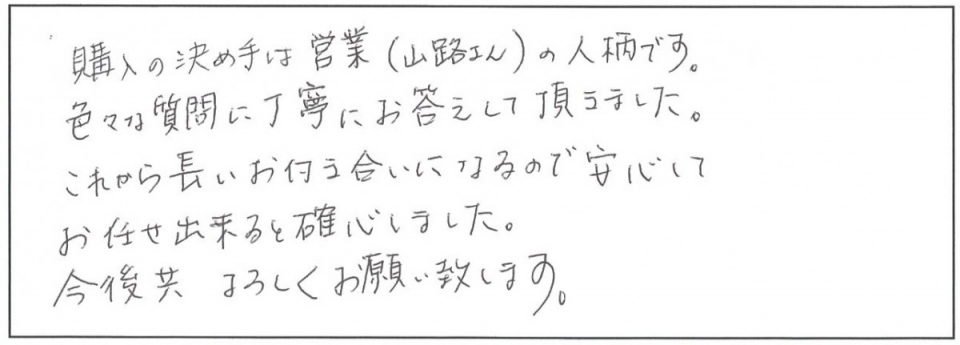 購入の決め手は営業(山路さん)の人柄です。
色々な質問に丁寧にお答えして頂きました。
これから長いお付き合いになるので安心して
お任せ出来ると確心しました。
今後共 よろしくお願い致します。